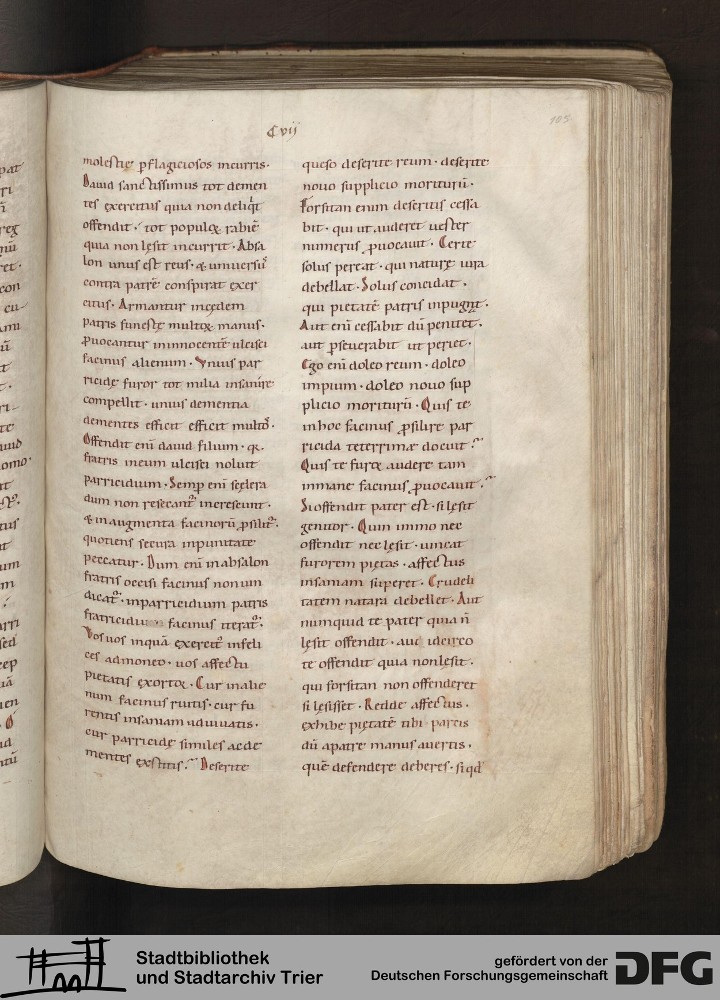 Cvij
105
molestię p̱flagiciosos incurris·
Dauid sanctissimus tot demen
tes exercitus quia non deliq̇t
offendit· tot populoꝝ rabiē
quia non lęsit incurrit· Absa
lon unus est reus· & uniuersū
contra patrē conspirat exer
citus· Armantur incędem
patris funestę multoꝝ manus·
ꝓuocantur ininnocentē ulcisci
facinus alienum· Vnius par
ricidę furor tot milia insanire
compellit· unius dementia
dementes efficit efficit multos·
Offendit eni dauid filium· q
fratris necem ulcisci noluit
parricidium· Semp̱ eni scelera
dum non resecant᷑ increscunt·
& in augmenta facinorū ꝓsiliit᷑·
quotiens secura inpunitate
peccatur· Dum eni inabsalon
fratris occisi facinus non uin
dicat᷑· inparricidium patris
fratricidii facinus iterat᷑·
Vos uos inquā exercit᷑ infeli
ces admoneo· uos affectu
pietatis exortor· Cur inalie
num facinus ruitis· cur fu
rentis insaniam adiuuatis·
cur parricidę similes ac de
mentes existitis? Deserite
queso deserite reum· deserite
nouo supplicio moriturū·
Forsitan enim deseritis cessa
bit· qui ut auderet uester
numerus ꝓuocauit· Certe
solus pereat· qui naturę iura
debellat· Solus concidat·
qui pietatē patris inpugnat·
Aut eni cessabit dū penitet·
aut p̱seuerabit ut periet·
Ego eni doleo reum· doleo
impium· doleo nouo sup
plicio moriturū· Quis te
inhoc facinus ꝓsilire par
ricida teterrimę docuit?
Quis te furor audere tam
inmane facinus ꝓuocauit?
Si offendit pater est· si lęsit
genitor· Quin immo nec
offendit nec lęsit· uincat
furorem pietas· affectus
insaniam superet· Crudeli
tatem natura debellet· Aut
numquid te pater quia n̄
lęsit offendit· aut idcirco
te offendit quia non lesit·
qui forsitan non offenderet
si lesisset· Redde affectus·
exhibe pietatē tibi parcis
dū a patre manus auertis·
quē defendere deberes· siqd
Stadtbibliothek
und Stadtarchiv Trier
gefördert von der
Deutschen Forschungsgemeinschaft
DFG